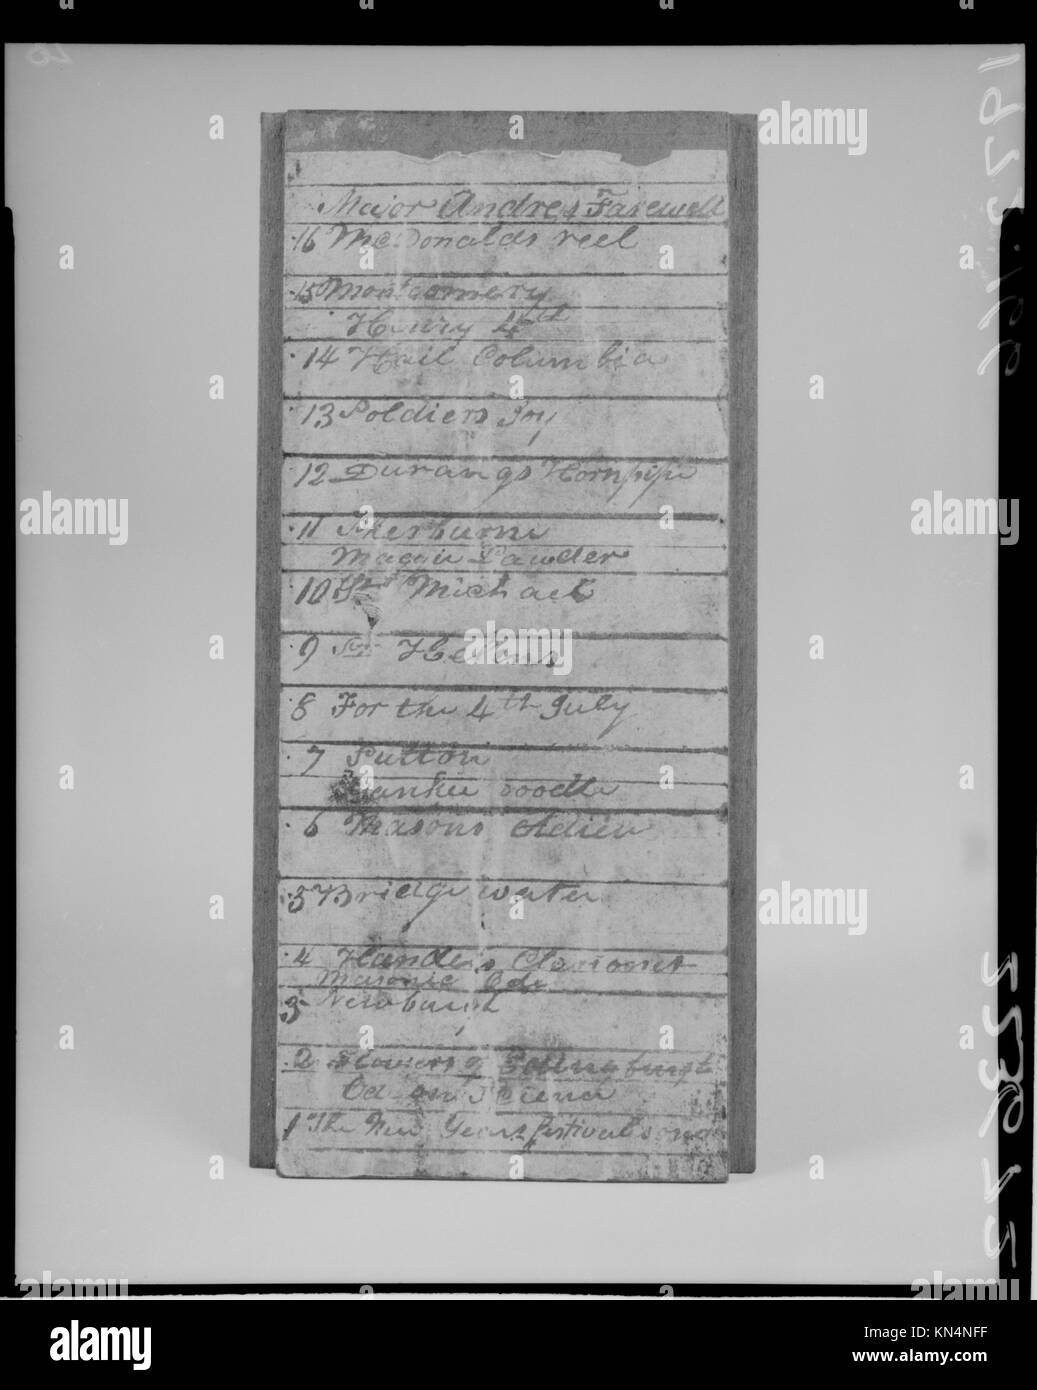 Major Andres Farewell
16 McDonalds reel
15 Montgomery
Henry 4th
14 Hail Columbia
13 Soldiers Joy
12 Durangs Hornpipe
11 Sherburne
Lawder
10 St Michael
9 St Hellens
8 For the 4th July
7 Sutton
Yankee doodle
6 Masons
5 Bridgewater
4 Handels Clarionet
Masonic Ode
3 Newburgh
2 Flowers of
Ode on Science
1 The New Years festival song
alamy
alamy
alamy
alamy
Image ID: KN4NFF
www.alamy.com